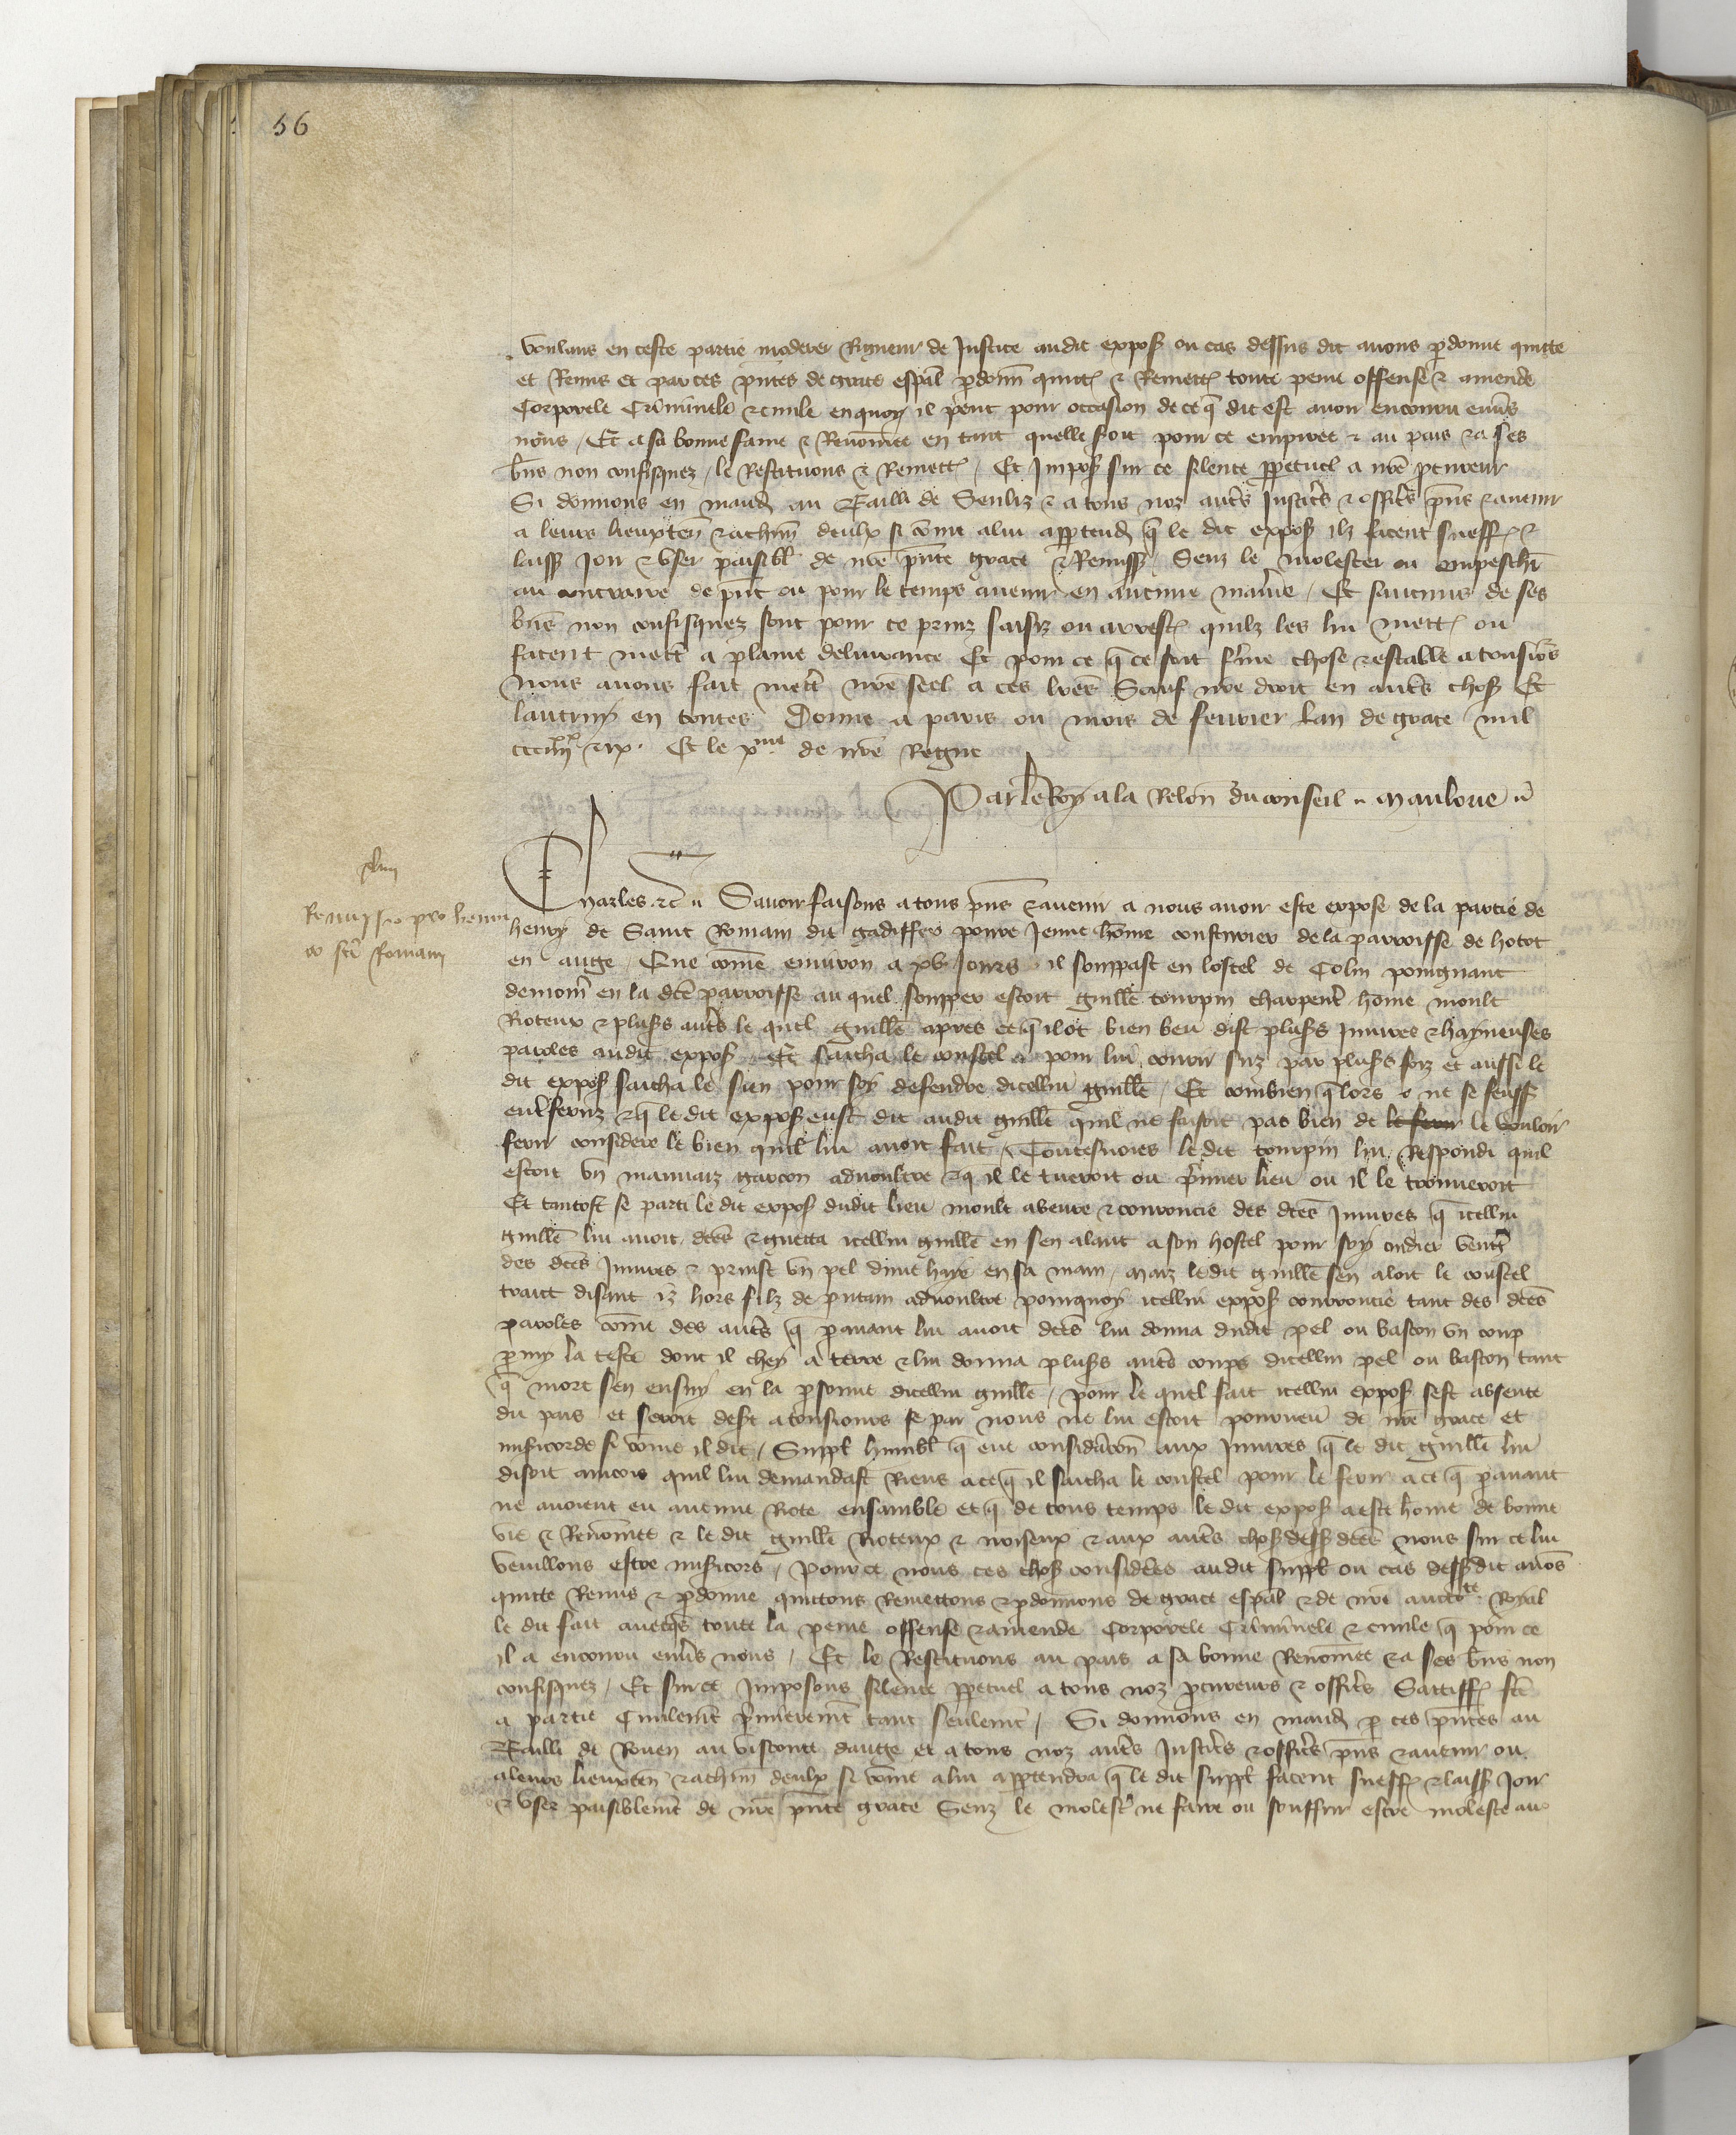 56
voulans en ceste partie moderer Rigueur de Justice audit expos ou cas dessus dit avons pdonne quitte
et Remis et par ces pntes de grace espal pdonn quitt & Remett toute peine offense & amende
Corporele Criminele & civile en quoy il peut pour occasion de ce q dit est avoir encouru envs
nous / Et a sa bonne fame & Renomee en tant quelle soit pour ce empiree & au pais & a ses
bns non confisquez / le Restituons & Remett / Et Impos sur ce silence ppetuel a nre pcureur
Si donnons en mand au Bailli de Senliz & a tous noz auts Justics & offics pns & avenir
a leurs lieuxten & a chun deulx si come a lui apptend q le dit expos ilz facent sueff &
laiss Joir & user paisibl de nre pnte grace & Remiss Senz le molester ou empeschr
au contraire de pnt ou pour le temps avenir en aucune manie / Et saucuns de ses
bns non confisquez sont pour ce prinz saisiz ou arrest quilz les lui mett ou
facent mett a plaine delivrance Et pour ce q ce soit ferme chose & estable a tousjors
Nous avons fait mett nre seel a ces lres Sauf nre droit en auts chos Et
lautruy en toutes Donne a paris ou mois de fevrier Lan de grace mil
ccc iiiixx & ix. Et le xme de nre Regne
Par le Roy a la Relon du conseil Maulone
Remissio pro henri
co sti Romani
Charles &c Savoir faisons a tous pns & avenir a nous avoir este expose de la partie de
henry de Saint Romain dit gadiffer povre Jeune homme cousturier de la parroisse de hotot
en auge / Que come environ a xv Jours il souppast en lostel de Colin poingnant
demour en la dce parroisse au quel soupper estoit guille tourpin charpent home moult
Rioteux & pluss auts le quel guille apres ce q il ot bien beu dist pluss Injures & haynenses
paroles audit expos Et sacha le coustel pour lui courir suz par pluss foiz et aussi le
dit expos sacha le sien pour soy defendre dicellui guille / Et combien q lors ne se feuss
entreferuz & q le dit expos eust dit audit guille quil ne faisoit pas bien de le ferir le vouloir
ferir considere le bien quil lui avoit fait / Toutesvoies le dit tourpin lui Respondi quil
estoit un mauvaiz garcon advoultre & q il le tueroit ou prmier lieu ou il le trouveroit
Et tantost se parti le dit expos dudit lieu moult & courroucie des dces Injures q icellui
guille lui avoit dces & guetta icellui guille en sen alant a son hostel pour soy cudier veng
des dces Injures & prinst un pel dune haye en sa main / Maiz le dit guille sen aloit le coustel
traict disant iz hors filz de putain advoultre pourquoy icellui expos courroucie tant des dces
paroles come des auts q pavant lui avoit dces lui donna dudit pel ou baston un coup
pmy la teste dont il chey a terre & lui donna pluss auts coups dicellui pel ou baston tant
q mort sen ensuy en la psonne dicellui guille / pour le quel fait icellui expos sest absente
du pais et seroit desert a tousjours se par nous ne lui estoit pourveu de nre grace et
misicorde si come il dit / Suppl humbl q eue considacon aux Injures q le dit guille lui
disoit aincois quil lui demandast Riens a ce q il sacha le coustel pour le ferir a ce q pavant
ne avoient eu aucune Riote ensamble et q de tous temps le dit expos a este home de bonne
vie & Renomee & le dit guille Rioteux & noiseux & aux auts chos dess dces nous sur ce lui
veuillons estre misicors / Pour ce nous ces chos considees audit suppl ou cas dess dit avos
quitte Remis & pdonne quittons Remettons & pdonnons de grace espal & de nre auctote Roial
le dit fait avecqs toute la peine offense & amende Corporele Criminele & civile q pour ce
il a encouru envs nous / Et le Restituons au pais a sa bonne Renomee & a ses bns non
confisquez / Et sur ce Imposons silence ppetuel a tous noz pcureurs & offics Satiff fce
a partie Civilemt prmierement tant seulemt / Si donnons en mand p ces pntes au
Bailli de Rouen au viconte dauge et a tous noz auts Justics & offics pns & avenir ou
a leurs lieuxten & a chun deulx si come a lui apptendra q le dit suppl facent sueff & laiss Joir
& user paisiblemt de nre pnte grace Senz le molest ne faire ou souffrir estre moleste au